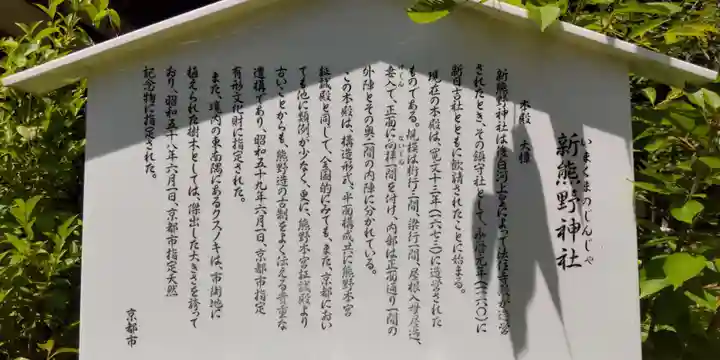 いまくまのじんじゃ
新熊野神社
本殿 大樟
新熊野神社は後白河上皇によって法住寺殿が造営
されたとき、その鎮守社として、永暦元年(一一六〇)に
新日吉社とともに歓請されたことに始まる。
現在の本殿は、寛文十三年(一六七三)に造営された
ものである。規模は桁行三間、梁行二間、屋根入母屋造、
妻入で、正面に向拝一間を付け、内部は正面通り一間の
げじん ないじん
外陣とその奥一間の内陣に分かれている。
この本殿は、構造形式、平面構成共に熊野本宮
証誠殿と同じで、全国的にみても、また、京都におい
ても他に類例が少なく、更に、熊野本宮証誠殿より
古いことからも、熊野造の古制をよく伝える貴重な
遺構であり、昭和五十九年六月一日、京都市指定
有形文化財に指定された。
また、境内の東南隅にあるクスノキは、市街地に
植えられた樹木としては、傑出した大きさを誇って
おり、昭和五十八年六月一日、京都市指定天然
記念物に指定された。
京都市